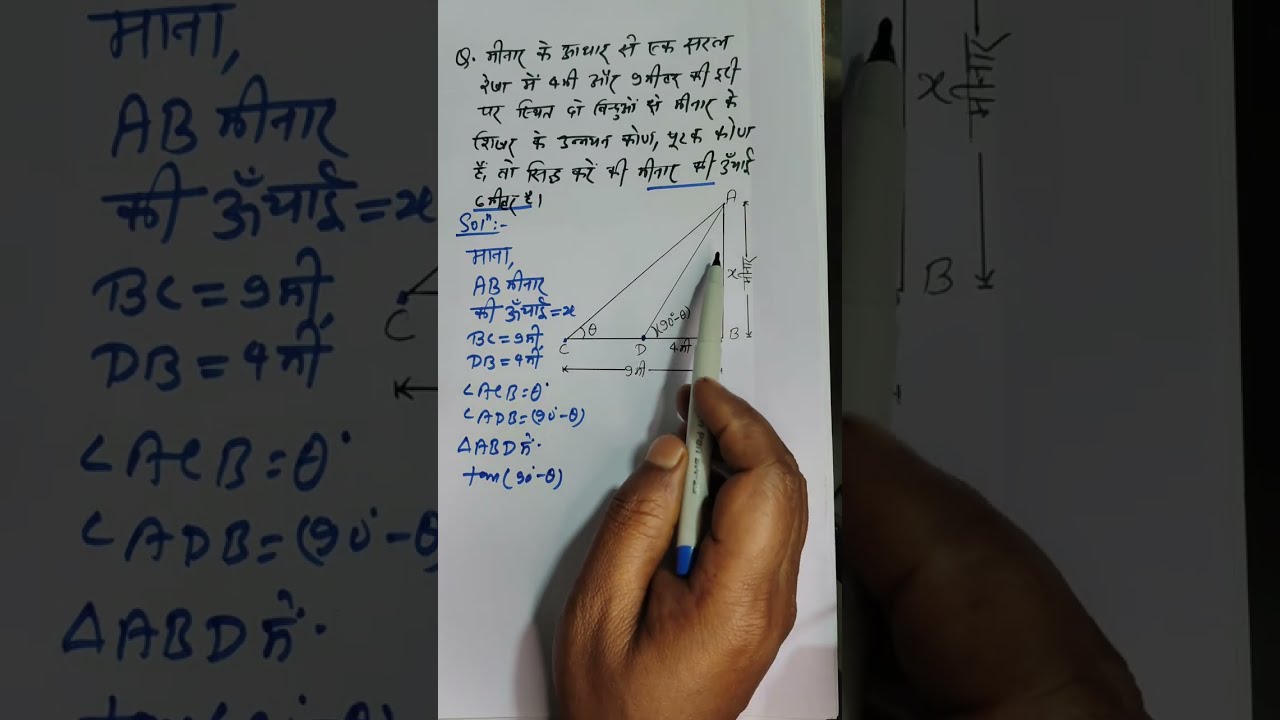 Q. मीनार के आधार से एक सरल
रेखा में 4मी और 9मीटर की दूरी
पर स्थित दो बिन्दुओं से मीनार के
शिखर के उन्नयन कोण, पूरक कोण
हैं, तो सिद्ध करें की मीनार की ऊँचाई
6मीटर है।
Solⁿ:-
माना,
AB मीनार
की ऊँचाई=x
BC=9मी
DB=4मी
∠ACB=θ°
∠ADB=(90°-θ)
△ABD में.
tan(90°-θ)
A
x
मीनार
θ
(90°-θ)
C
D
4मी
B
9मी
माना,
AB मीनार
की ऊँचाई=x
BC=9मी
DB=4मी
∠ACB=θ°
∠ADB=(90°-θ
△ABD में.
C
x
मीनार
B